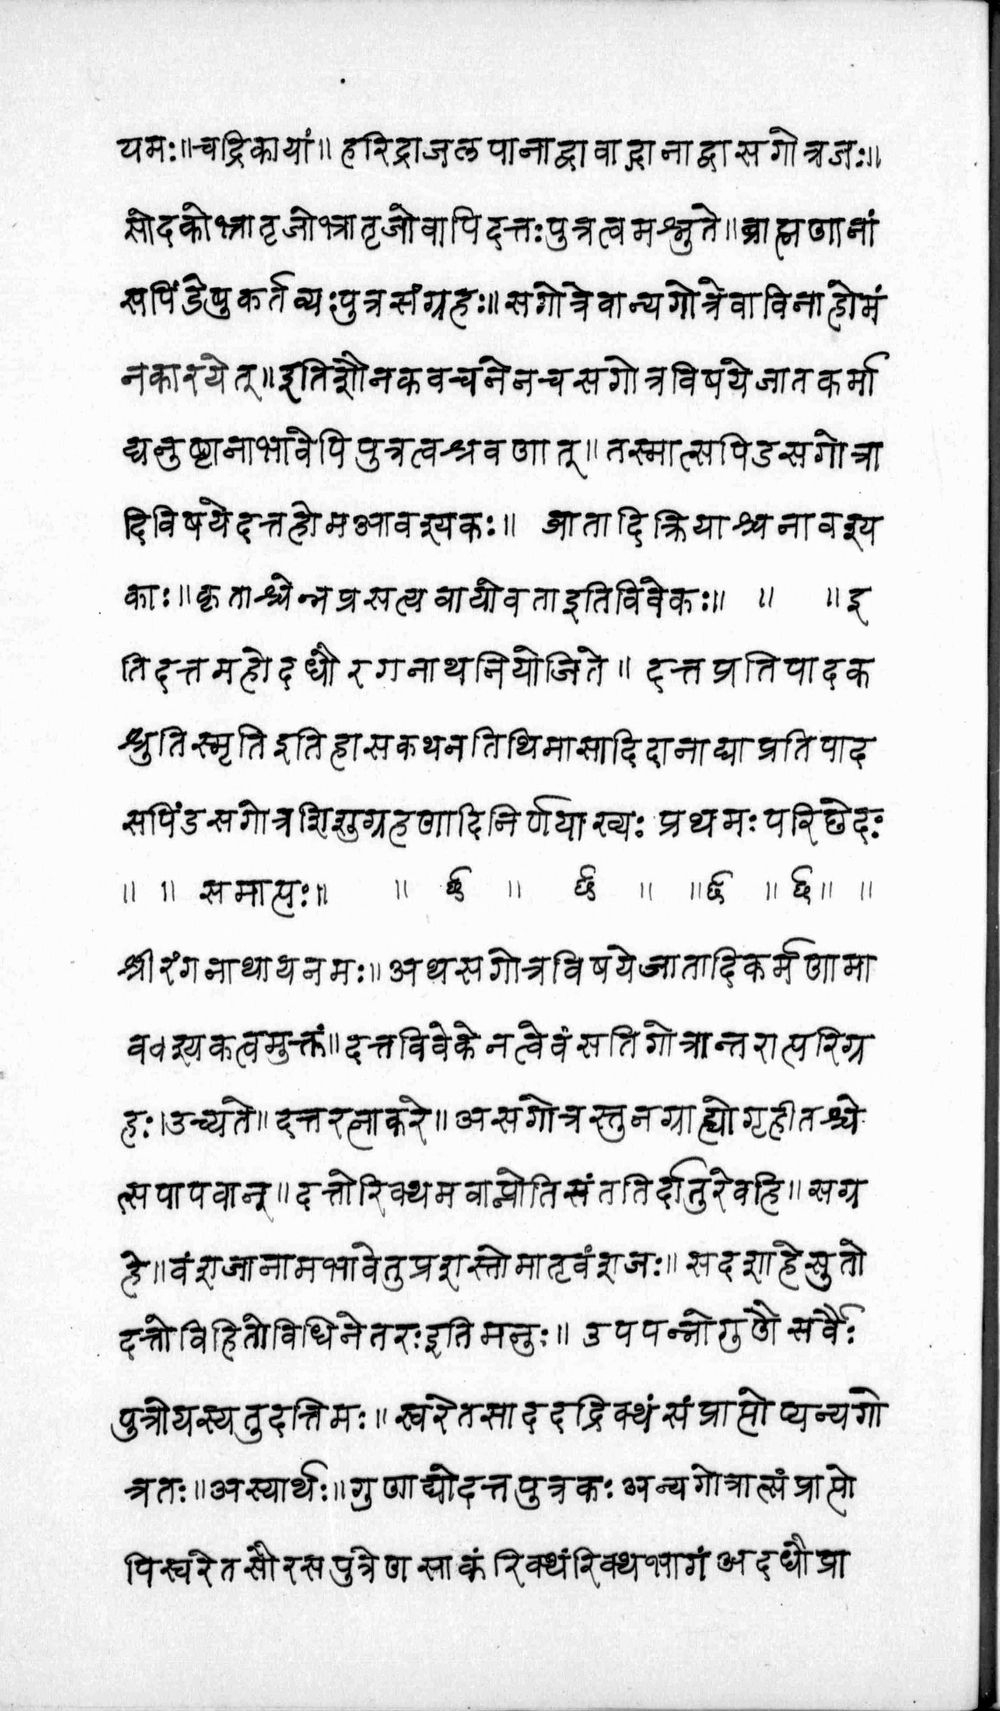 यमः॥चद्रिकायां॥हरिद्राजलपानाद्वावाद्गानाद्वासगोत्रजः॥
सोदकोभ्रातृजोभ्रातृजोवापिदत्तःपुत्रत्वमश्नुते॥ब्राह्मणानां
सपिंडेषुकर्तव्यःपुत्रसंग्रहः॥सगोत्रेवान्यगोत्रेवाविनाहोमं
नकारयेत्॥इतिशौनकवचनेनचसगोत्रविषयेजातकर्मा
द्यनुष्ठानाभावेपिपुत्रत्वश्रवणात्॥तस्मात्सपिडसगोत्रा
दिविषयेदत्तहोमआवश्यकः॥ जातादिक्रियाश्चनावश्य
काः॥कृताश्चेन्नप्रसत्यवायोवताइतिविवेकः॥ ॥ ॥इ
तिदत्तमहोदधौरगनाथनियोजिते॥ दत्तप्रतिपादक
श्रुतिस्मृतिइतिहासकथनतिथिमासादिदानाद्याप्रतिपाद
सपिंडसगोत्रशिशुग्रहणादिनिर्णयाख्यः प्रथमः परिछेदः
॥ ॥ समाप्तः॥ ॥ छ ॥ छ ॥ ॥छ ॥छ॥ ॥
श्रीरंगनाथायनमः॥अथसगोत्रविषयेजातादिकर्मणामा
ववश्यकत्वमुक्तं॥दत्तविवेकेनत्वेवंसतिगोत्रान्तरात्परिग्र
हः।उच्यते॥दत्तरत्नाकरे॥असगोत्रस्तुनग्राह्योगृहीतश्चे
त्सपापवान्॥दत्तोरिक्थमवाप्नोतिसंततिर्दातुरेवहि॥सग्र
हे॥वंशजानामभावेतुप्रशस्तोमातृवंशजः॥सदशाहेसुतो
दत्तोविहितोविधिनेतरःइतिमनुः॥ उपपन्नोगुणैसर्वैः
पुत्रोयस्यतुदत्तिमः॥स्वरेतसाददद्रिक्थंसंप्राप्तोप्यन्यगो
त्रतः॥अस्यार्थः॥गुणाद्योदत्तपुत्रकःअन्यगोत्रात्संप्राप्तो
पिस्वरेतसौरसपुत्रेणसाकंरिक्थंरिक्थभागंअदधौप्रा